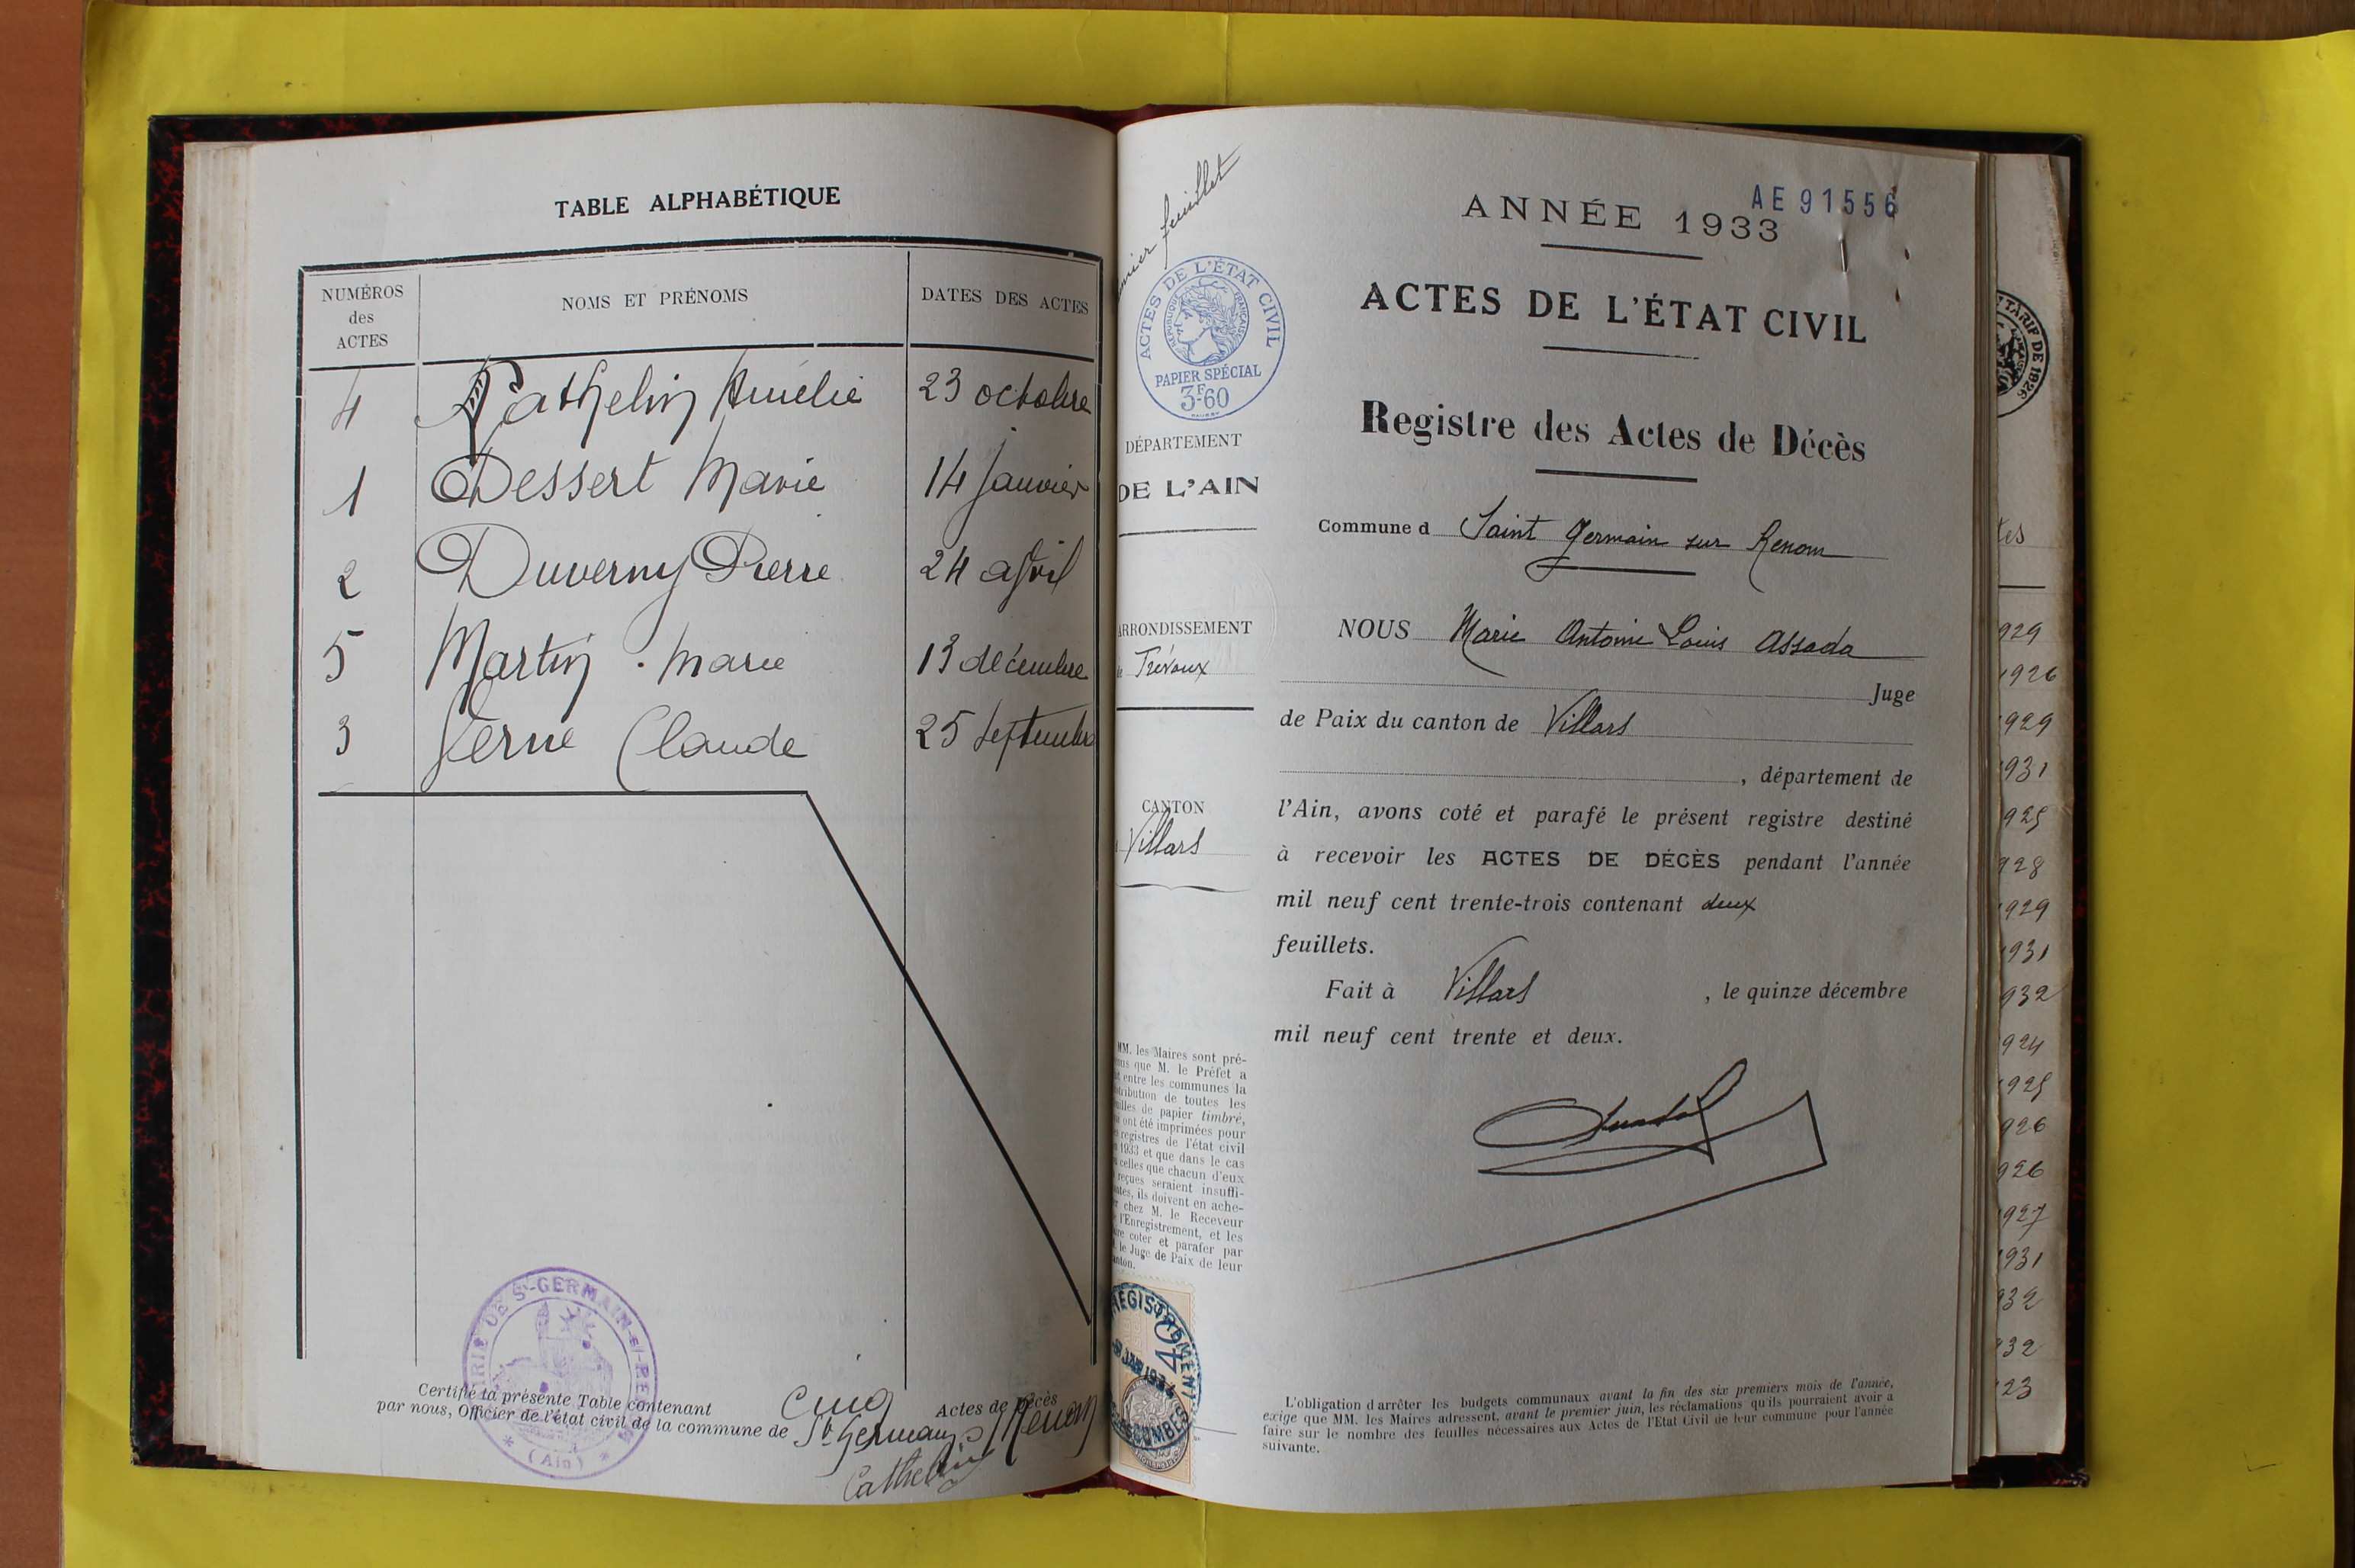 TABLE ALPHABÉTIQUE
NUMÉROS des ACTES
NOMS ET PRÉNOMS
DATES DES ACTES
4 Cathelin Amélie 23 octobre
1 Dessert Marie 14 Janvier
2 Duverny Pierre 24 avril
5 Martin Marie 13 décembre
3 Verne Claude 25 Septembre
Certifié la présente Table contenant cinq Actes de Décès
par nous, Officier de l'état civil de la commune de St Germain s/ Renon
Cathelin
MAIRIE DE St-GERMAIN-s/-RENON
(Ain)
feuillet
ACTES DE L'ÉTAT CIVIL
RÉPUBLIQUE FRANÇAISE
PAPIER SPÉCIAL
3F60
DÉPARTEMENT
DE L'AIN
ARRONDISSEMENT
de Trévoux
CANTON
Villars
MM. les Maires sont pré-
que M. le Préfet a
entre les communes la
de toutes les
de papier timbré,
ont été imprimées pour
registres de l'état civil
1933 et que dans le cas
celles que chacun d'eux
reçues seraient insuffi-
ils doivent en ache-
chez M. le Receveur
l'Enregistrement, et les
coter et parafer par
le Juge de Paix de leur
40
AE 91556
ANNÉE 1933
ACTES DE L'ÉTAT CIVIL
Registre des Actes de Décès
Commune d Saint Germain sur Renom
NOUS Marie Antoine Louis Assada
Juge
de Paix du canton de Villars
, département de
l'Ain, avons coté et parafé le présent registre destiné
à recevoir les ACTES DE DÉCÈS pendant l'année
mil neuf cent trente-trois contenant deux
feuillets.
Fait à Villars , le quinze décembre
mil neuf cent trente et deux.
L'obligation d'arrêter les budgets communaux avant la fin des six premiers mois de l'année,
exige que MM. les Maires adressent, avant le premier juin, les réclamations qu'ils pourraient avoir à
faire sur le nombre des feuilles nécessaires aux Actes de l'Etat Civil de leur commune pour l'année
suivante.
TARIF DE 1926
929
1926
929
931
925
928
929
931
932
924
925
926
926
927
931
932
32
23